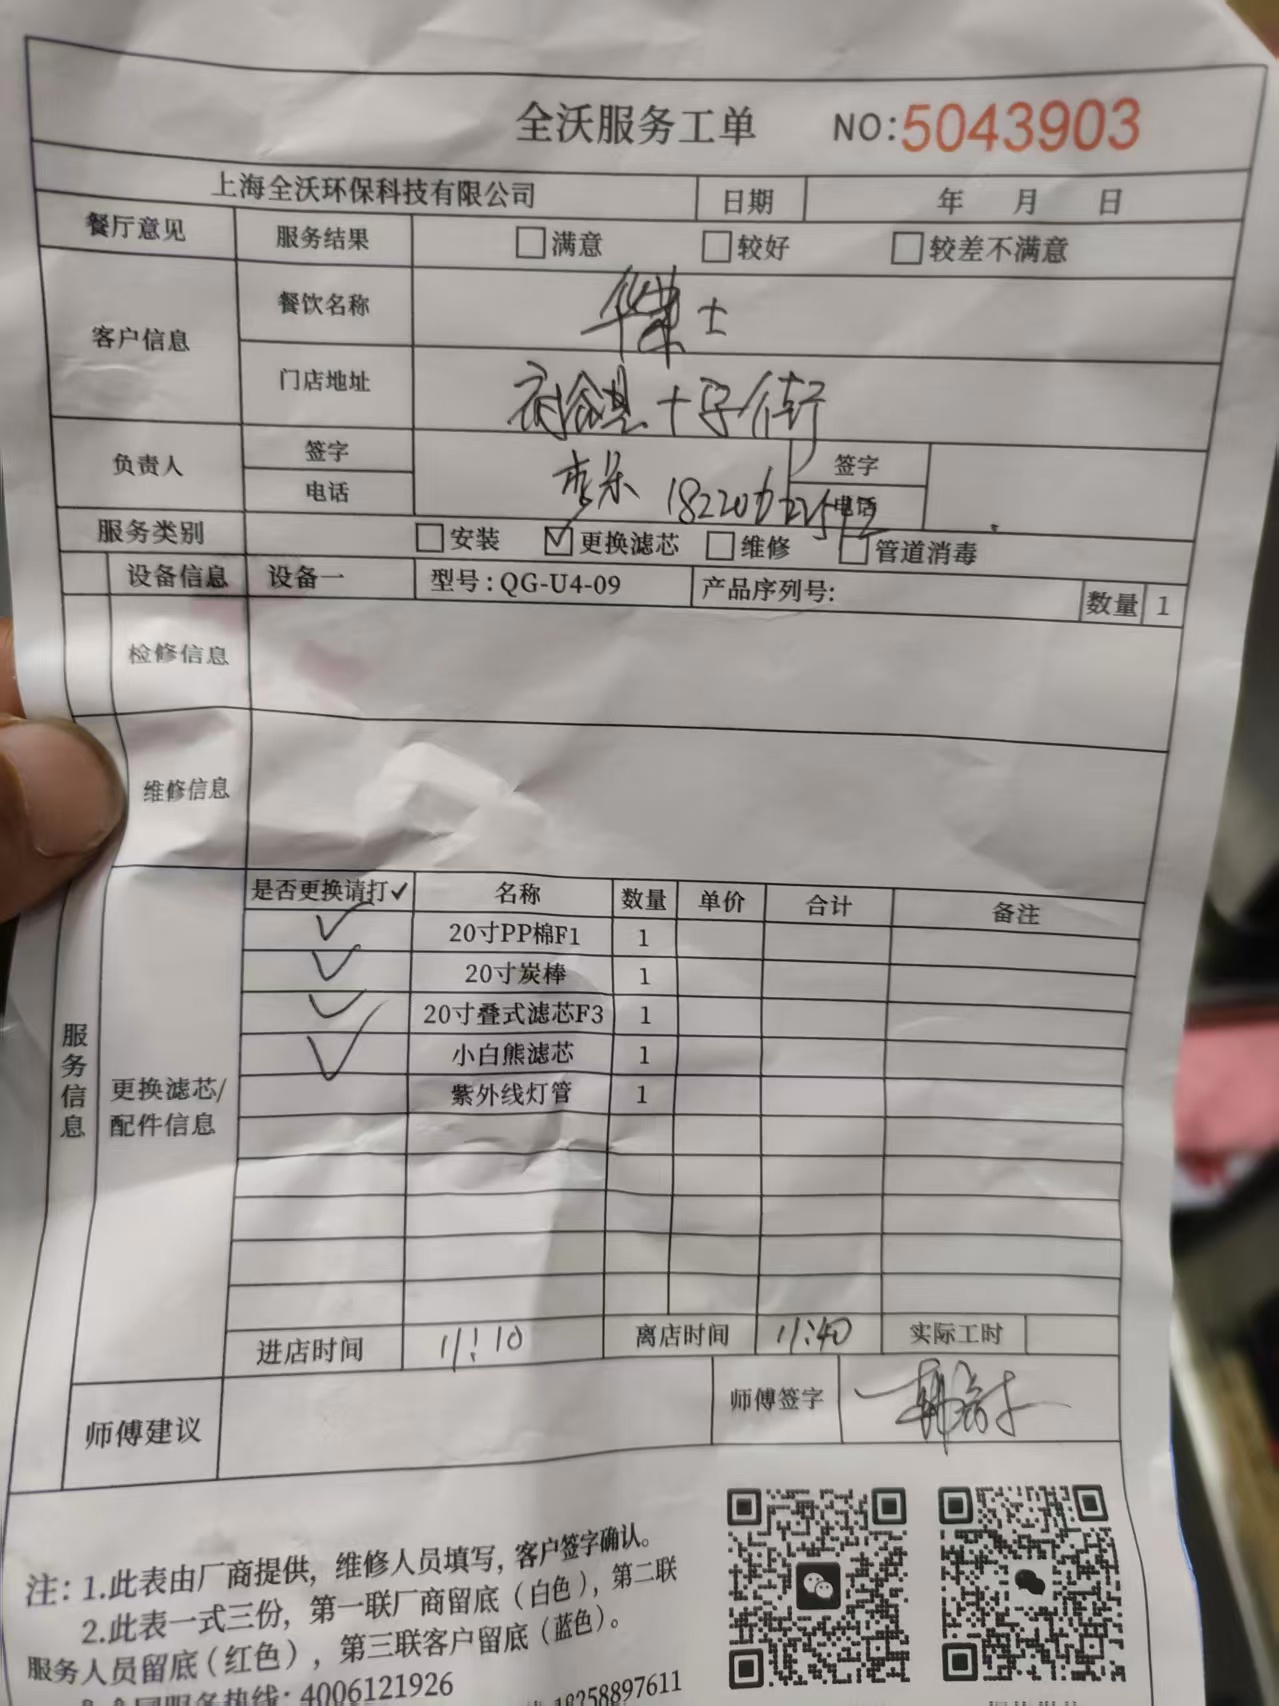 全沃服务工单 NO:5043903
上海全沃环保科技有限公司 日期 年 月 日
餐厅意见 服务结果 □满意 □较好 □较差不满意
客户信息 餐饮名称 华莱士
门店地址 十字街
负责人 签字 签字
电话 电话
服务类别 □安装 ☑更换滤芯 □维修 □管道消毒
设备信息 设备一 型号:QG-U4-09 产品序列号: 数量 1
检修信息
维修信息
服务信息
更换滤芯/
配件信息
是否更换请打✓ 名称 数量 单价 合计 备注
✓ 20寸PP棉F1 1
✓ 20寸炭棒 1
✓ 20寸叠式滤芯F3 1
✓ 小白熊滤芯 1
紫外线灯管 1
进店时间 11:10 离店时间 11:40 实际工时
师傅建议 师傅签字
注:1.此表由厂商提供,维修人员填写,客户签字确认。
2.此表一式三份,第一联厂商留底(白色),第二联
服务人员留底(红色),第三联客户留底(蓝色)。
国服务热线:4006121926 18258897611